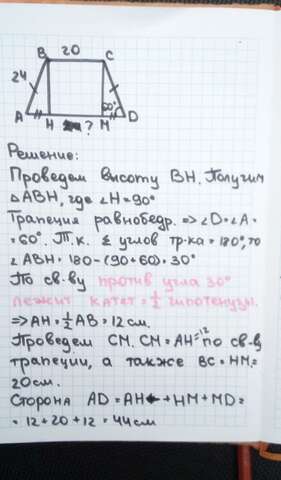 B 20 C
24
60°
A H ? M D
Решение:
Проведем высоту BH. Получим
△ABH, где ∠H=90°
Трапеция равнобедр. ⇒ ∠D=∠A=
=60°. Т.к. Σ углов тр-ка = 180°, то
∠ABH = 180-(90+60) = 30°
По св-ву против угла 30°
лежит катет = 1/2 гипотенузы.
⇒ AH = 1/2 AB = 12 см.
Проведем CM. CM = AH = 12 по св-в
трапеции, а также BC = HM =
20см.
Сторона AD = AH + HM + MD =
= 12 + 20 + 12 = 44 см